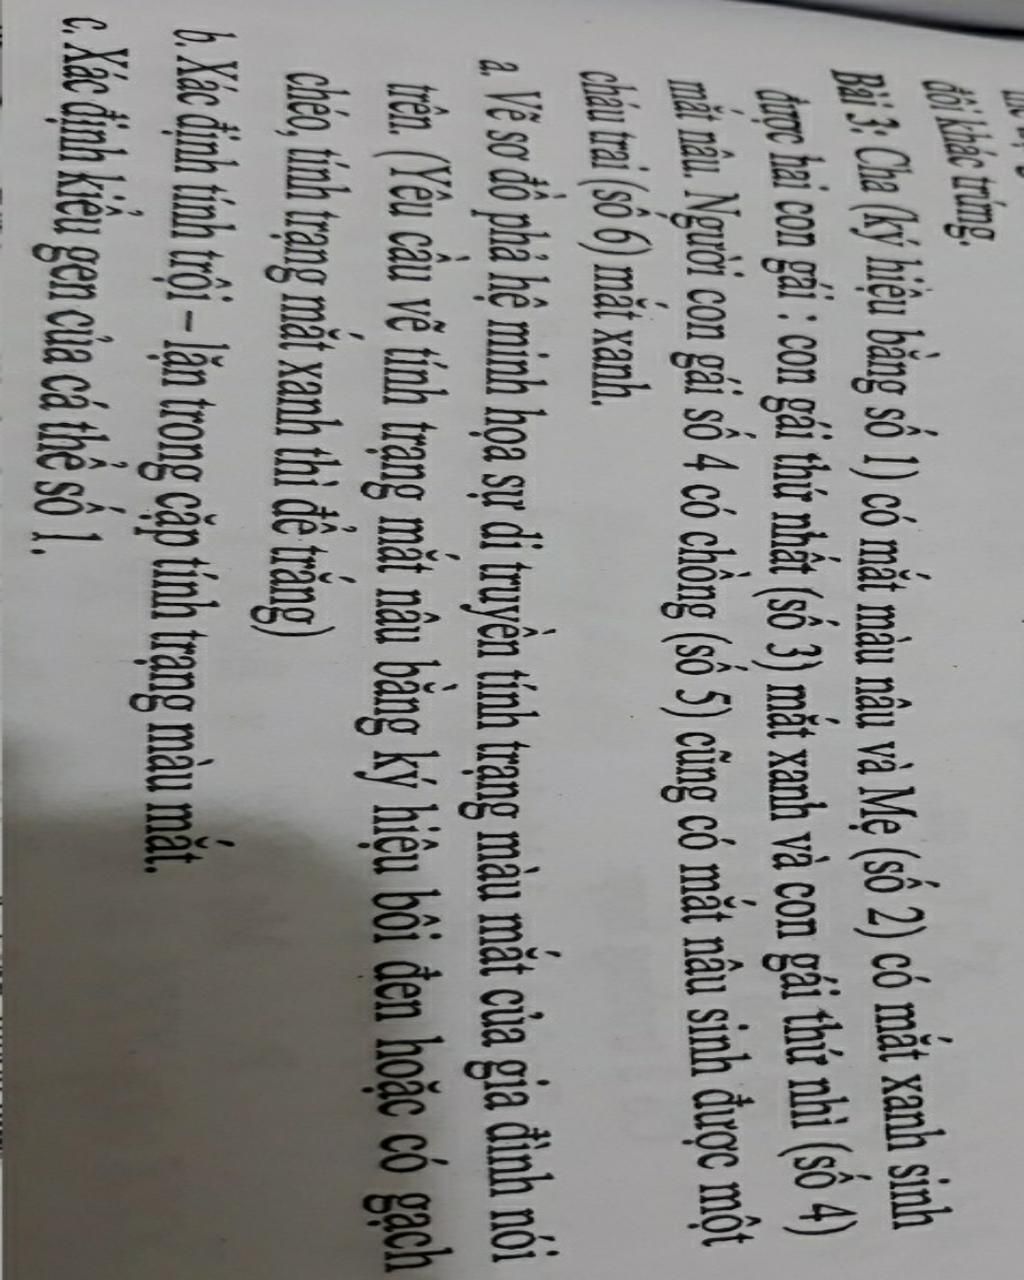 đôi khác trứng.
Bài 3: Cha (ký hiệu bằng số 1) có mắt màu nâu và Mẹ (số 2) có mắt xanh sinh
được hai con gái : con gái thứ nhất (số 3) mắt xanh và con gái thứ nhì (số 4)
mắt nâu. Người con gái số 4 có chồng (số 5) cũng có mắt nâu sinh được một
cháu trai (số 6) mắt xanh.
a. Vẽ sơ đồ phả hệ minh họa sự di truyền tính trạng màu mắt của gia đình nói
trên. (Yêu cầu vẽ tính trạng mắt nâu bằng ký hiệu bôi đen hoặc có gạch
chéo, tính trạng mắt xanh thì để trắng)
b. Xác định tính trội – lặn trong cặp tính trạng màu mắt.
c. Xác định kiểu gen của cá thể số 1.